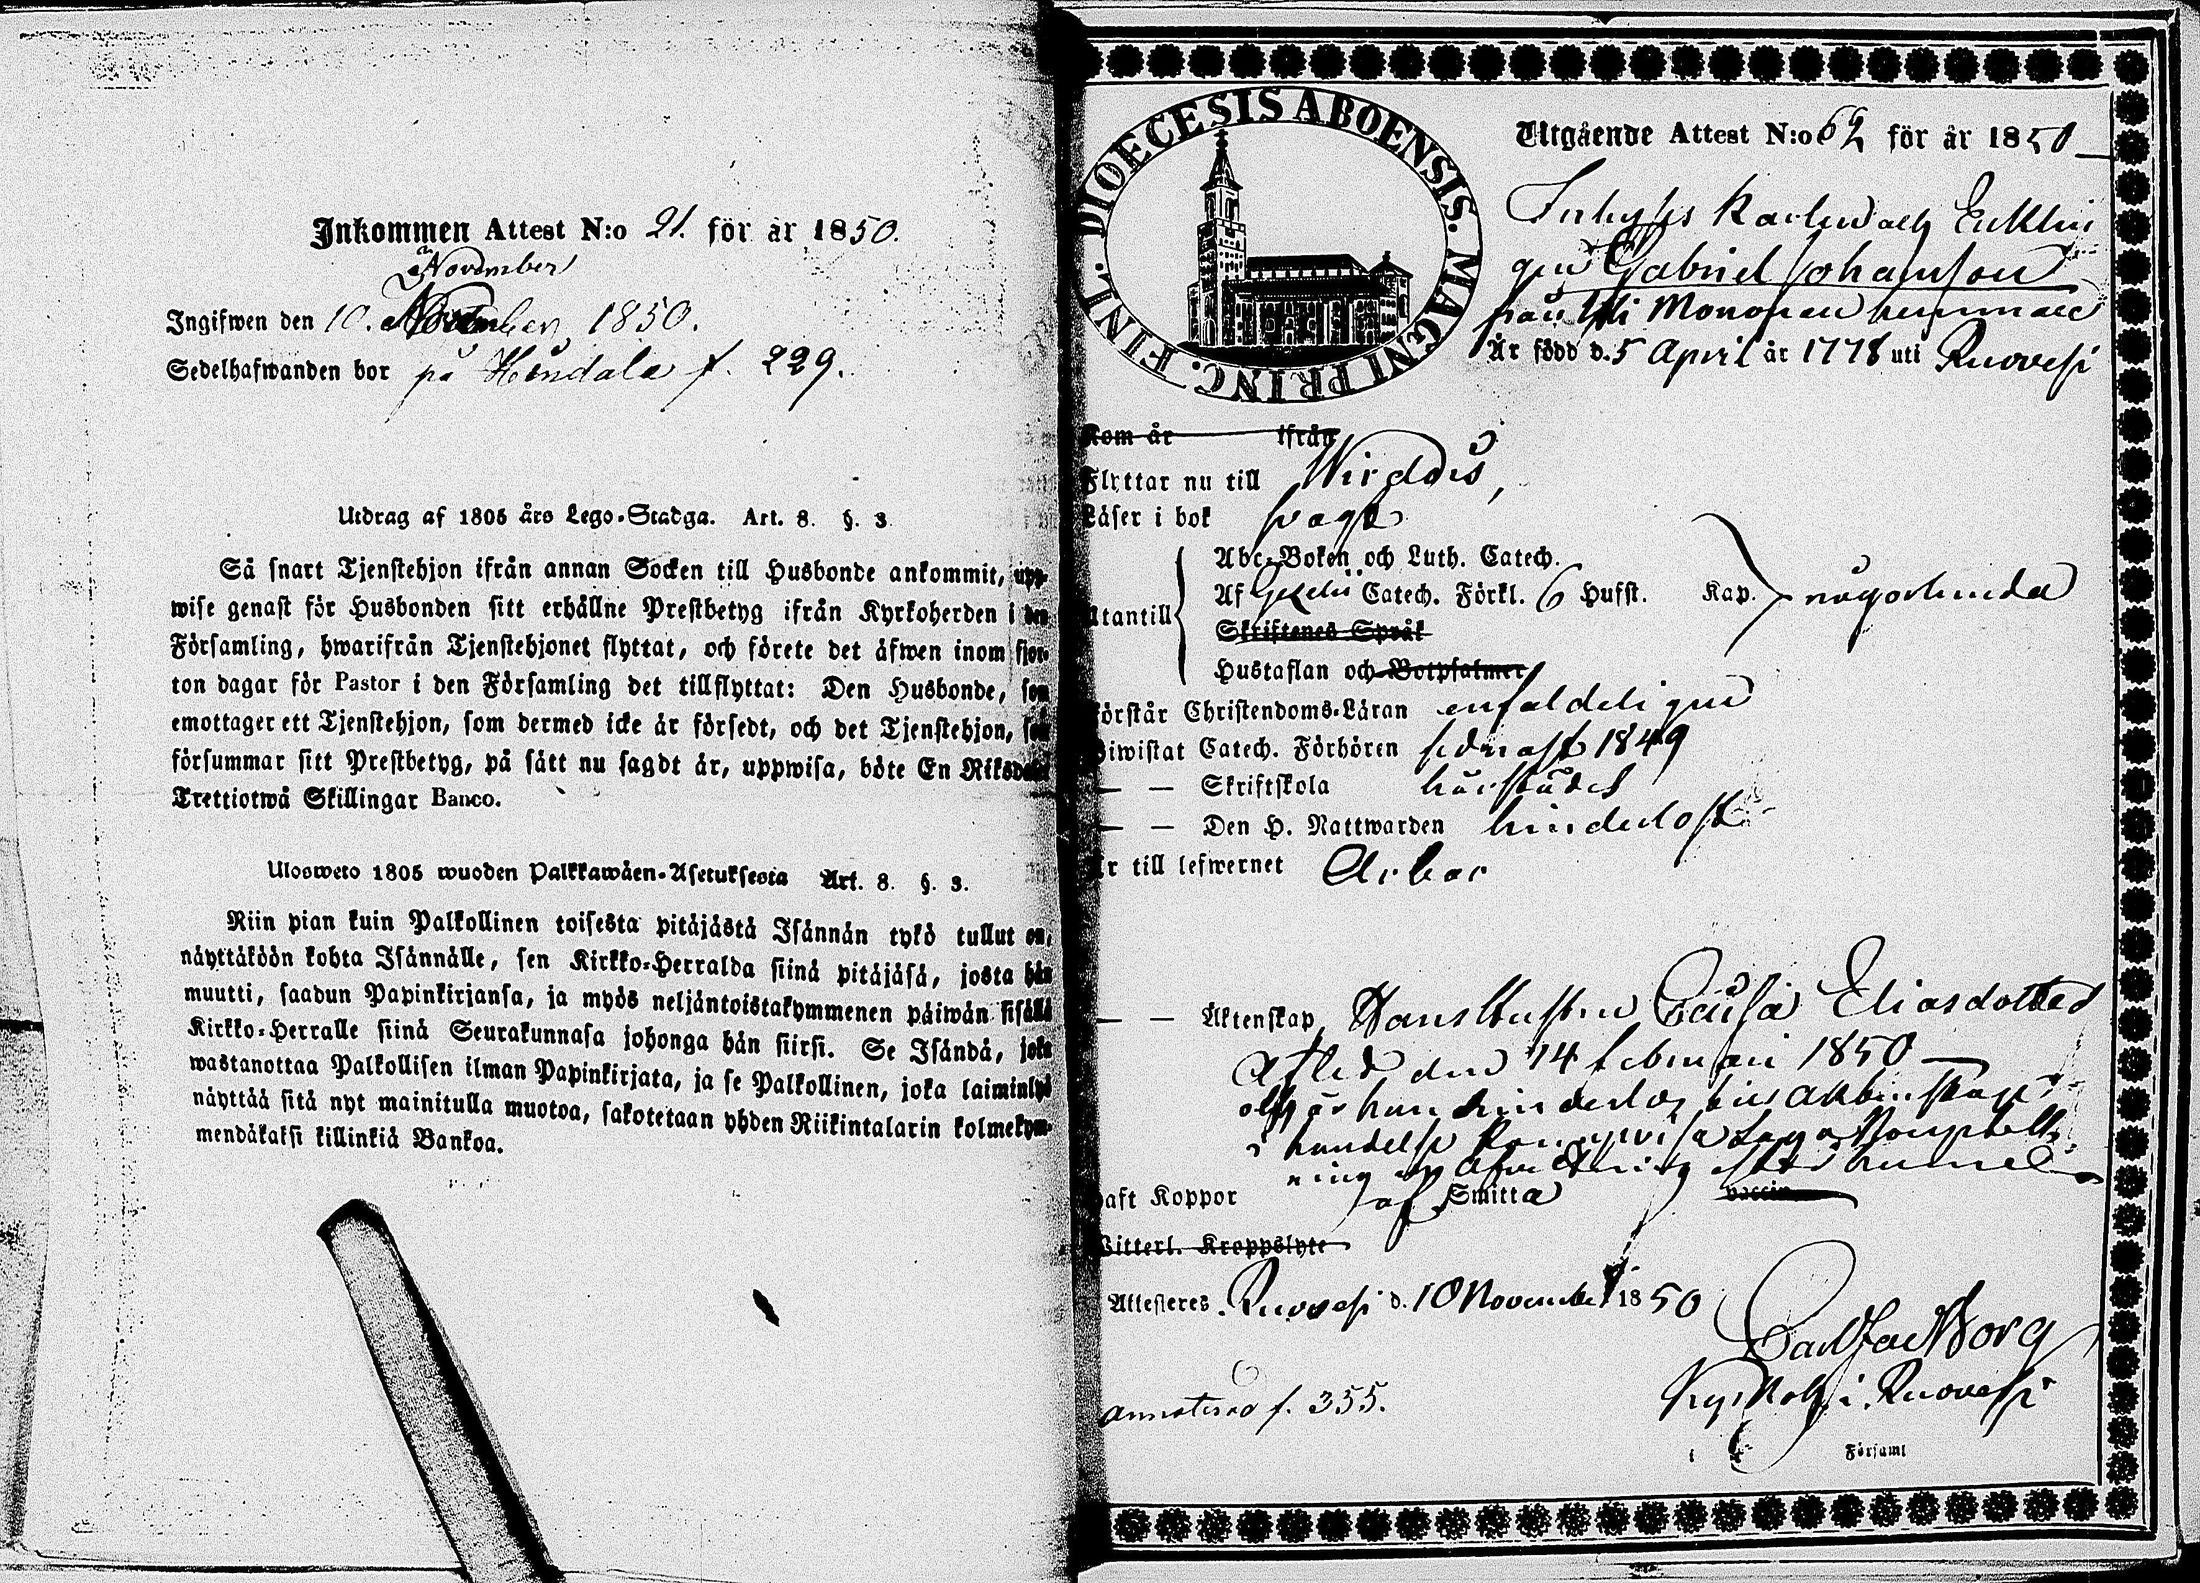 Inkommen Attest N:o 21. för år 1850.
November
Ingifwen den 10. November 1850.
Sedelhafwanden bor på Hindala f. 229.
Utdrag af 1805 års Lego-Stadga. Art. 8. §. 3
Så snart Tjenstehjon ifrån annan Socken till Husbonde ankommit, upp-
wise genast för Husbonden sitt erhållne Prestbetyg ifrån Kyrkoherden i den
Församling, hwarifrån Tjenstehjonet flyttat, och förete det äfwen inom fjor-
ton dagar för Pastor i den Församling det tillflyttat: Den Husbonde, som
emottager ett Tjenstehjon, som dermed icke är försedt, och det Tjenstehjon, som
försummar sitt Prestbetyg, på sätt nu sagdt är, uppwisa, böte En Riksdaler
Trettiotwå Skillingar Banco.
Ulosweto 1805 wuoden Palkkawäen-Asetuksesta Art. 8. §. 3.
Niin pian kuin Palkollinen toisesta pitäjästä Isännän tykö tullut on,
näyttäköön kohta Isännälle, sen Kirkko-Herralda siinä pitäjäsä, josta hän
muutti, saadun Papinkirjansa, ja myös neljäntoistakymmenen päiwän sisällä
Kirkko-Herralle siinä Seurakunnasa johonga hän siirsi. Se Isändä, joka
wastanottaa Palkollisen ilman Papinkirjata, ja se Palkollinen, joka laiminlyö
näyttää sitä nyt mainitulla muotoa, sakotetaan yhden Riikintalarin kolmekym-
mendäkaksi killinkiä Bankoa.
DIOECESIS ABOENSIS. MAGNI PRINC. FINL.
Utgående Attest N:o 62 för år 1850
Inhyses Karlen och Enklin
gen Gabriel Johansson
från Yli Mononen hemman
Är född d. 5 April år 1778 uti Ruovesi
Kom år ifrån
Flyttar nu till Wirdois,
Läser i bok svagt
Abc-Boken och Luth. Catech.
Utantill Af Gezelii Catech. Förkl. 6 Hufst. Kap. någorlunda
Skriftenes Språk
Hustaflan och Botpsalmer
Förstår Christendoms-Läran enfaldeligen
Biwistat Catech. Förhören sednast 1849
— — Skriftskola
— — Den H. Nattwarden hinderlöst
Är till lefwernet Ärbar
— — Äktenskap, Hans Hustru Caisa Eliasdotter
afled den 14 februari 1850
Haft Koppor af Smitta vaccin
Witterl. Kroppslyte
Attesteres Ruovesi d. 10 November 1850
Carl Jac Borg
Kyrkoh. i Ruovesi
annoterad f. 355.
Församl